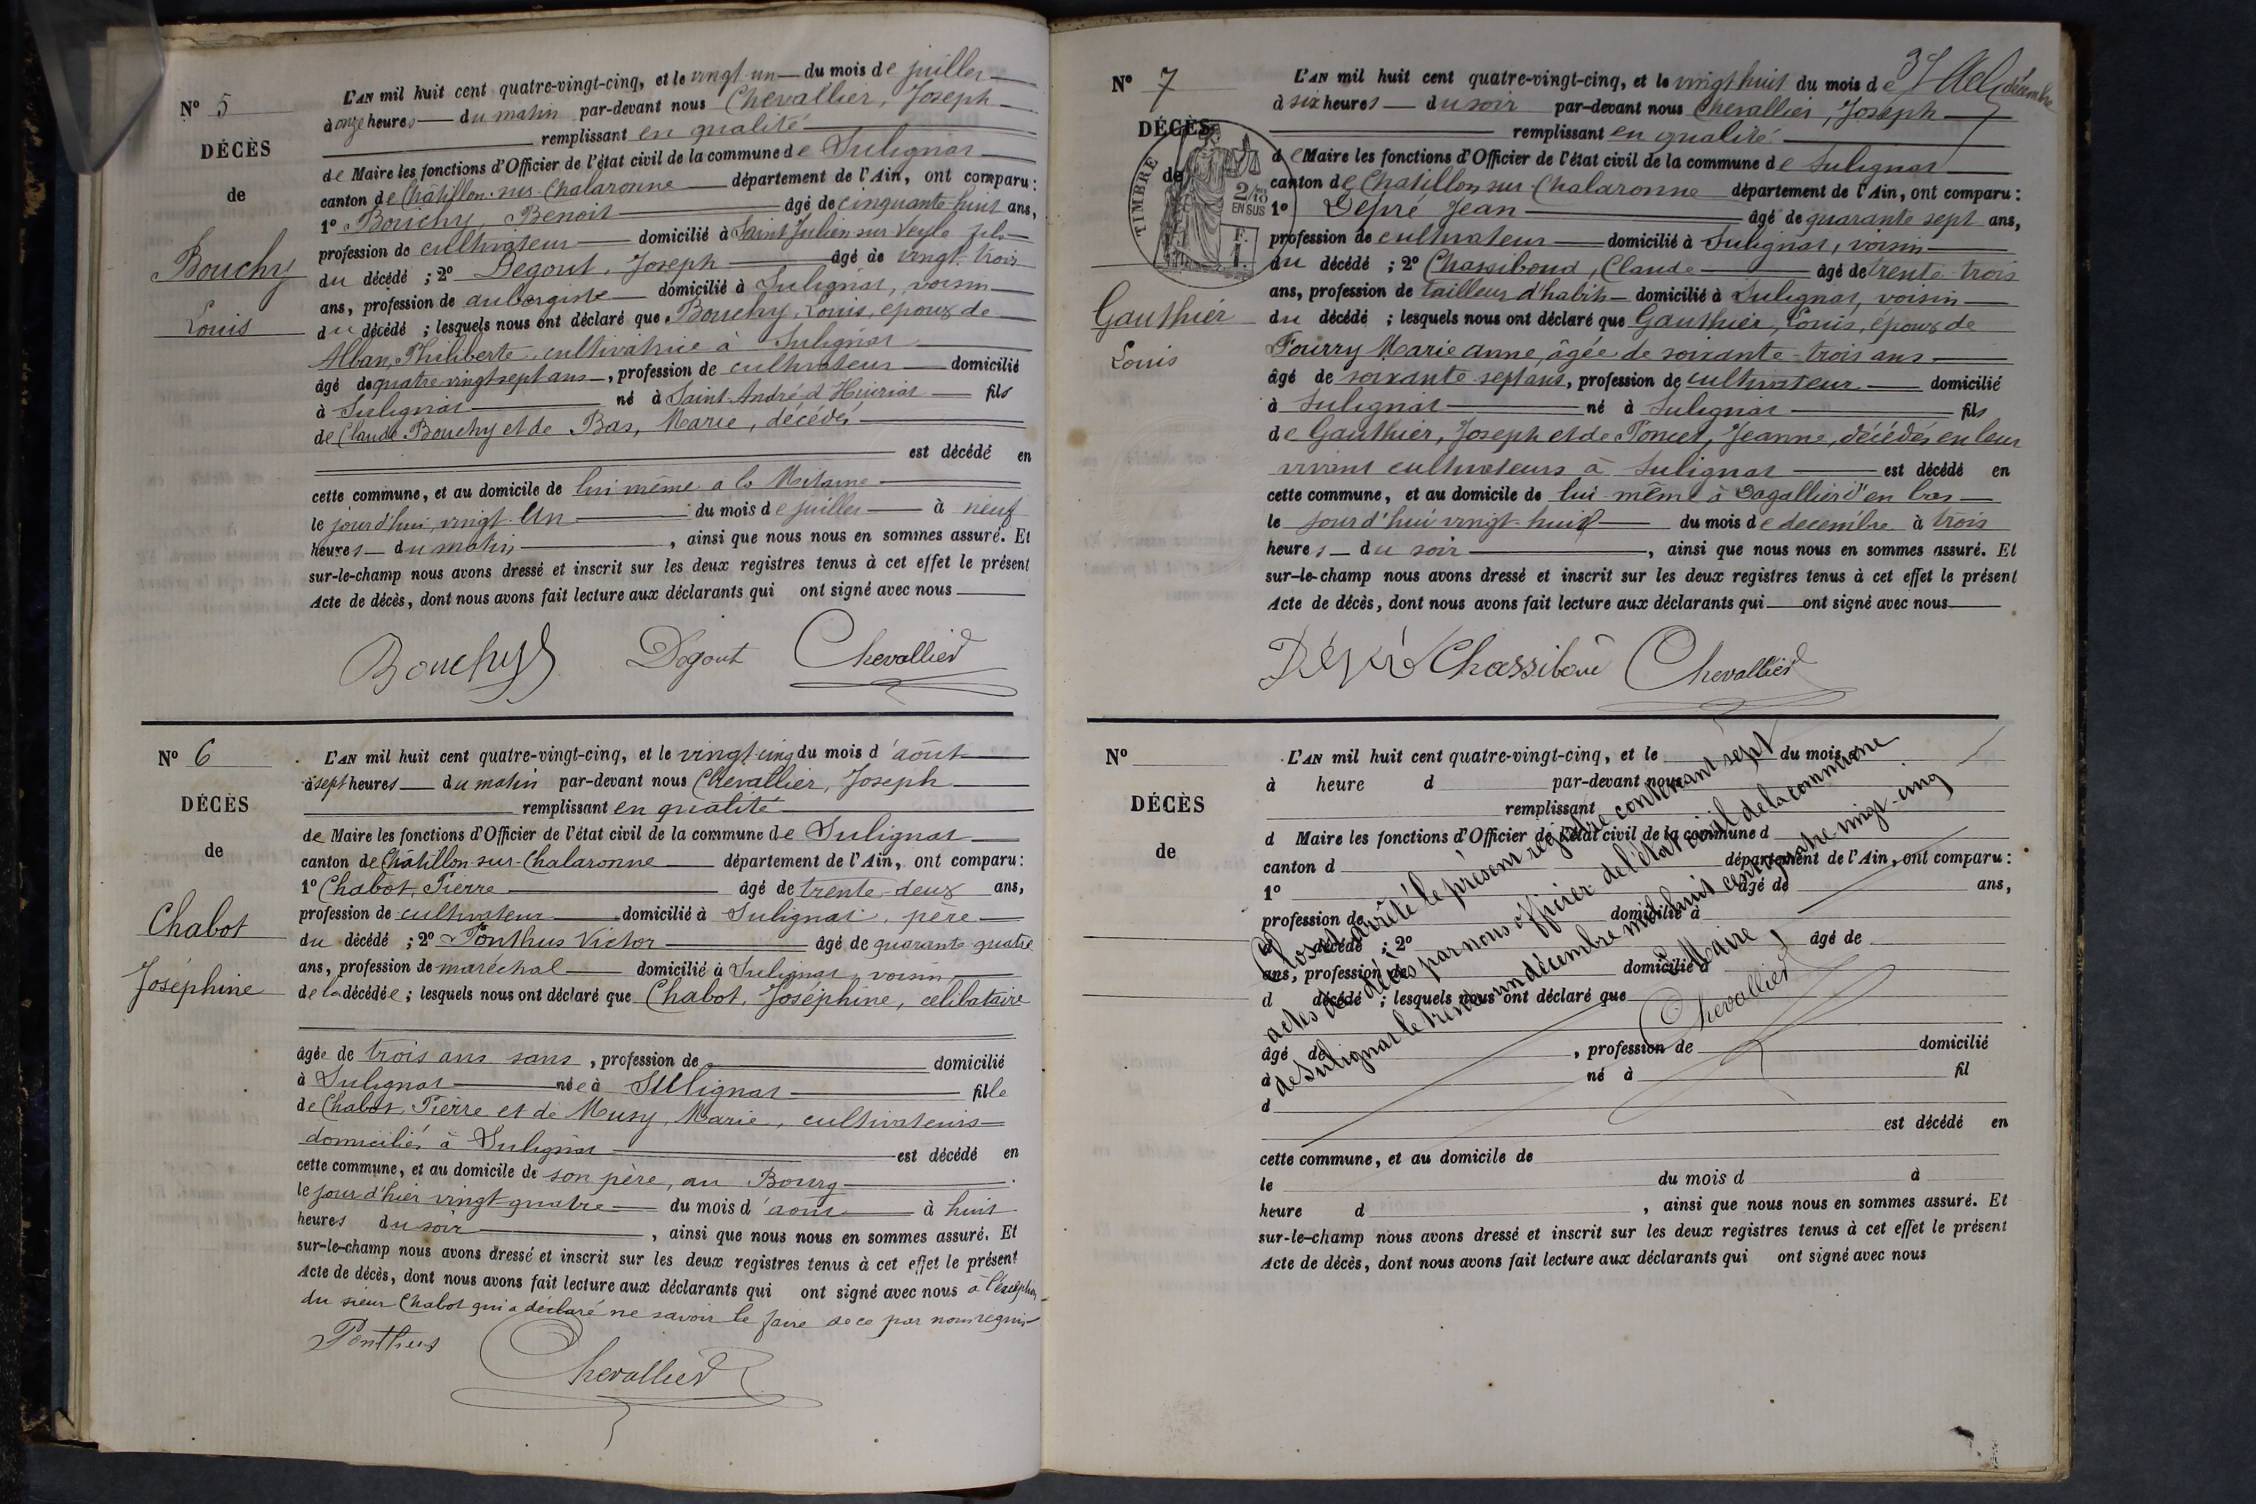 N° 5
DÉCÈS
de
Bouchy
Louis
L'AN mil huit cent quatre-vingt-cinq, et le vingt-un du mois de juillet
à onze heures du matin par-devant nous Chevallier, Joseph
remplissant en qualité
de Maire les fonctions d'Officier de l'état civil de la commune de Sulignat
canton de Châtillon-sur-Chalaronne département de l'Ain, ont comparu :
1° Bouchy, Benoit âgé de cinquante-huit ans,
profession de cultivateur domicilié à Saint Julien sur Veyle fils
du décédé ; 2° Degout, Joseph âgé de vingt-trois
ans, profession de aubergiste domicilié à Sulignat, voisin
du décédé ; lesquels nous ont déclaré que Bouchy, Louis, époux de
Alban, Philiberte, cultivatrice à Sulignat
âgé de quatre vingt sept ans, profession de cultivateur domicilié
à Sulignat né à Saint-André d'Huiriat fils
de Claude Bouchy et de Bas, Marie, décédés
est décédé en
cette commune, et au domicile de lui même a la Mitaine
le jourd'hui, vingt-Un du mois de juillet à neuf
heures du matin, ainsi que nous nous en sommes assuré. Et
sur-le-champ nous avons dressé et inscrit sur les deux registres tenus à cet effet le présent
Acte de décès, dont nous avons fait lecture aux déclarants qui ont signé avec nous
Bouchy Degout Chevallier
N° 6
DÉCÈS
de
Chabot
Joséphine
L'AN mil huit cent quatre-vingt-cinq, et le vingt-cinq du mois d'août
à sept heures du matin par-devant nous Chevallier, Joseph
remplissant en qualité
de Maire les fonctions d'Officier de l'état civil de la commune de Sulignat
canton de Châtillon-sur-Chalaronne département de l'Ain, ont comparu :
1° Chabot, Pierre âgé de trente-deux ans,
profession de cultivateur domicilié à Sulignat, père
du décédé ; 2° Ponthus Victor âgé de quarante quatre
ans, profession de maréchal domicilié à Sulignat, voisin
de la décédée ; lesquels nous ont déclaré que Chabot, Joséphine, celibataire
âgée de trois ans sans, profession de domicilié
à Sulignat née à Sulignat fille
de Chabot, Pierre et de Musy, Marie, cultivateurs
domiciliés à Sulignat est décédé en
cette commune, et au domicile de son père, au Bourg
le jour d'hier vingt-quatre du mois d'août à huit
heures du soir, ainsi que nous nous en sommes assuré. Et
sur-le-champ nous avons dressé et inscrit sur les deux registres tenus à cet effet le présent
Acte de décès, dont nous avons fait lecture aux déclarants qui ont signé avec nous à l'exception
du sieur Chabot qui a déclaré ne savoir le faire de ce par nous requis
Ponthus
Chevallier
N° 7
DÉCÈS
de
TIMBRE
2/10
EN SUS
F.
1.
Gauthier
Louis
L'AN mil huit cent quatre-vingt-cinq, et le vingt huit du mois de décembre
à six heures du soir par-devant nous Chevallier, Joseph
remplissant en qualité
de Maire les fonctions d'Officier de l'état civil de la commune de Sulignat
canton de Chatillon sur Chalaronne département de l'Ain, ont comparu :
1° Dépré Jean âgé de quarante sept ans,
profession de cultivateur domicilié à Sulignat, voisin
du décédé ; 2° Chassiboud, Claude âgé de trente-trois
ans, profession de tailleur d'habits domicilié à Sulignat, voisin
du décédé ; lesquels nous ont déclaré que Gauthier, Louis, époux de
Fourry Marie anne, âgée de soixante-trois ans
âgé de soixante sept ans, profession de cultivateur domicilié
à Sulignat né à Sulignat fils
de Gauthier, Joseph et de Poncet, Jeanne, décédés en leur
vivant cultivateurs à Sulignat est décédé en
cette commune, et au domicile de lui-même à d'en bas
le jour d'hui vingt-huit du mois de decembre à trois
heures du soir, ainsi que nous nous en sommes assuré. Et
sur-le-champ nous avons dressé et inscrit sur les deux registres tenus à cet effet le présent
Acte de décès, dont nous avons fait lecture aux déclarants qui ont signé avec nous
Dépré Chassiboud Chevallier
N°
DÉCÈS
de
L'AN mil huit cent quatre-vingt-cinq, et le du mois d
à heure d par-devant nous
remplissant
d Maire les fonctions d'Officier de l'état civil de la commune d
canton d département de l'Ain, ont comparu :
1° âgé de ans,
profession de domicilié à
d décédé ; 2° âgé de
ans, profession de domicilié à
d décédé ; lesquels nous ont déclaré que
âgé de , profession de domicilié
à né à fil
d
est décédé en
cette commune, et au domicile de
le du mois d à
heure d , ainsi que nous nous en sommes assuré. Et
sur-le-champ nous avons dressé et inscrit sur les deux registres tenus à cet effet le présent
Acte de décès, dont nous avons fait lecture aux déclarants qui ont signé avec nous
Clos et arrêté le présent registre contenant sept
actes de décès par nous officier de l'état civil de la commune
de Sulignat le trente un décembre mil huit cent quatre vingt-cinq
Le Maire,
Chevallier